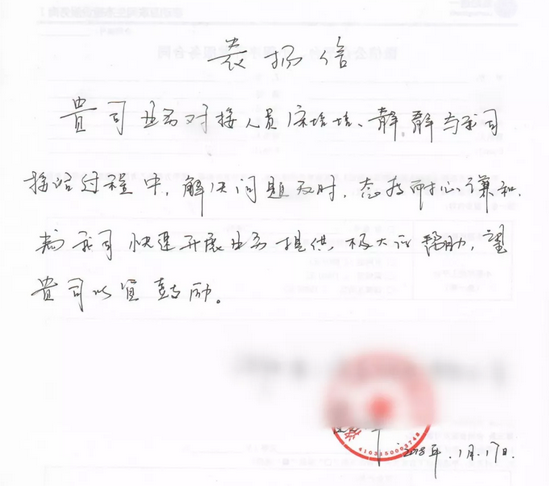 表扬信
贵司业务对接人员 培培、静静与我司
接洽过程中,解决问题及时,态度耐心谦和,
为我司快速开展业务提供极大的帮助,望
贵司以宜鼓励。
2018年.1月.17日.